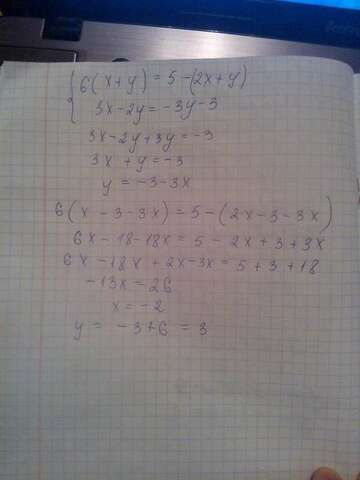 { 6(x+y) = 5-(2x+y)
3x-2y = -3y-3
3x-2y+3y = -3
3x + y = -3
y = -3-3x
6(x-3-3x) = 5-(2x-3-3x)
6x-18-18x = 5-2x+3+3x
6x-18x+2x-3x = 5+3+18
-13x = 26
x = -2
y = -3+6 = 3